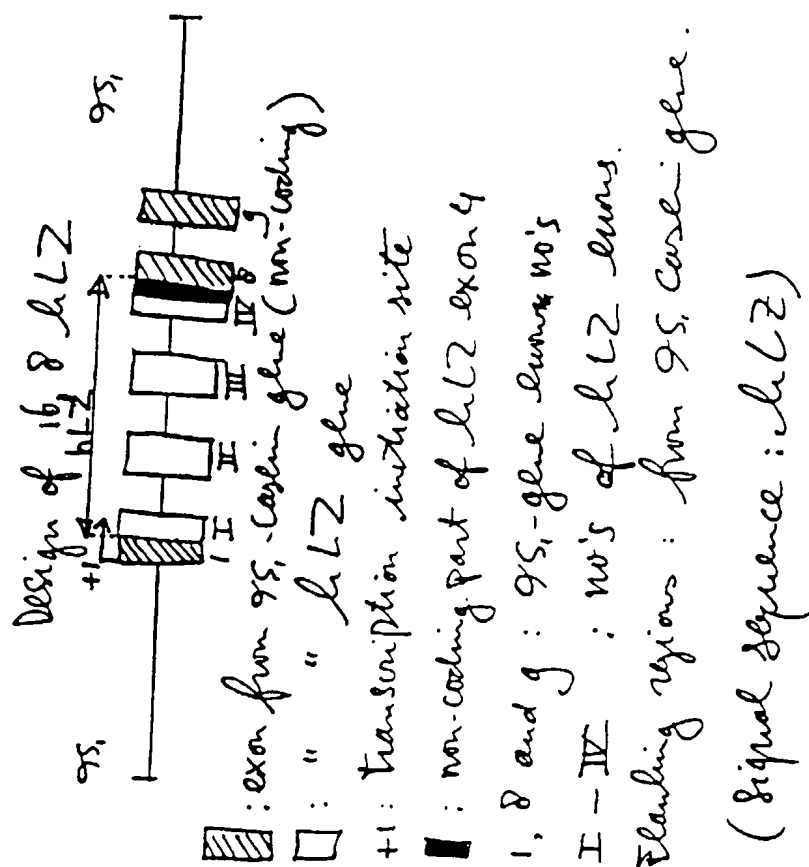 Design of 16, 8 hLZ
αS₁ +1 hLZ αS₁
1 I II III IV 8 9
: exon from αS₁-casein gene (non-coding)
: " " hLZ gene
+1 : transcription initiation site
: non-coding part of hLZ exon 4
1, 8 and 9 : αS₁-gene exons no's
I – IV : no's of hLZ exons.
Flanking regions : from αS₁ casein gene.
(signal sequence : hLZ)